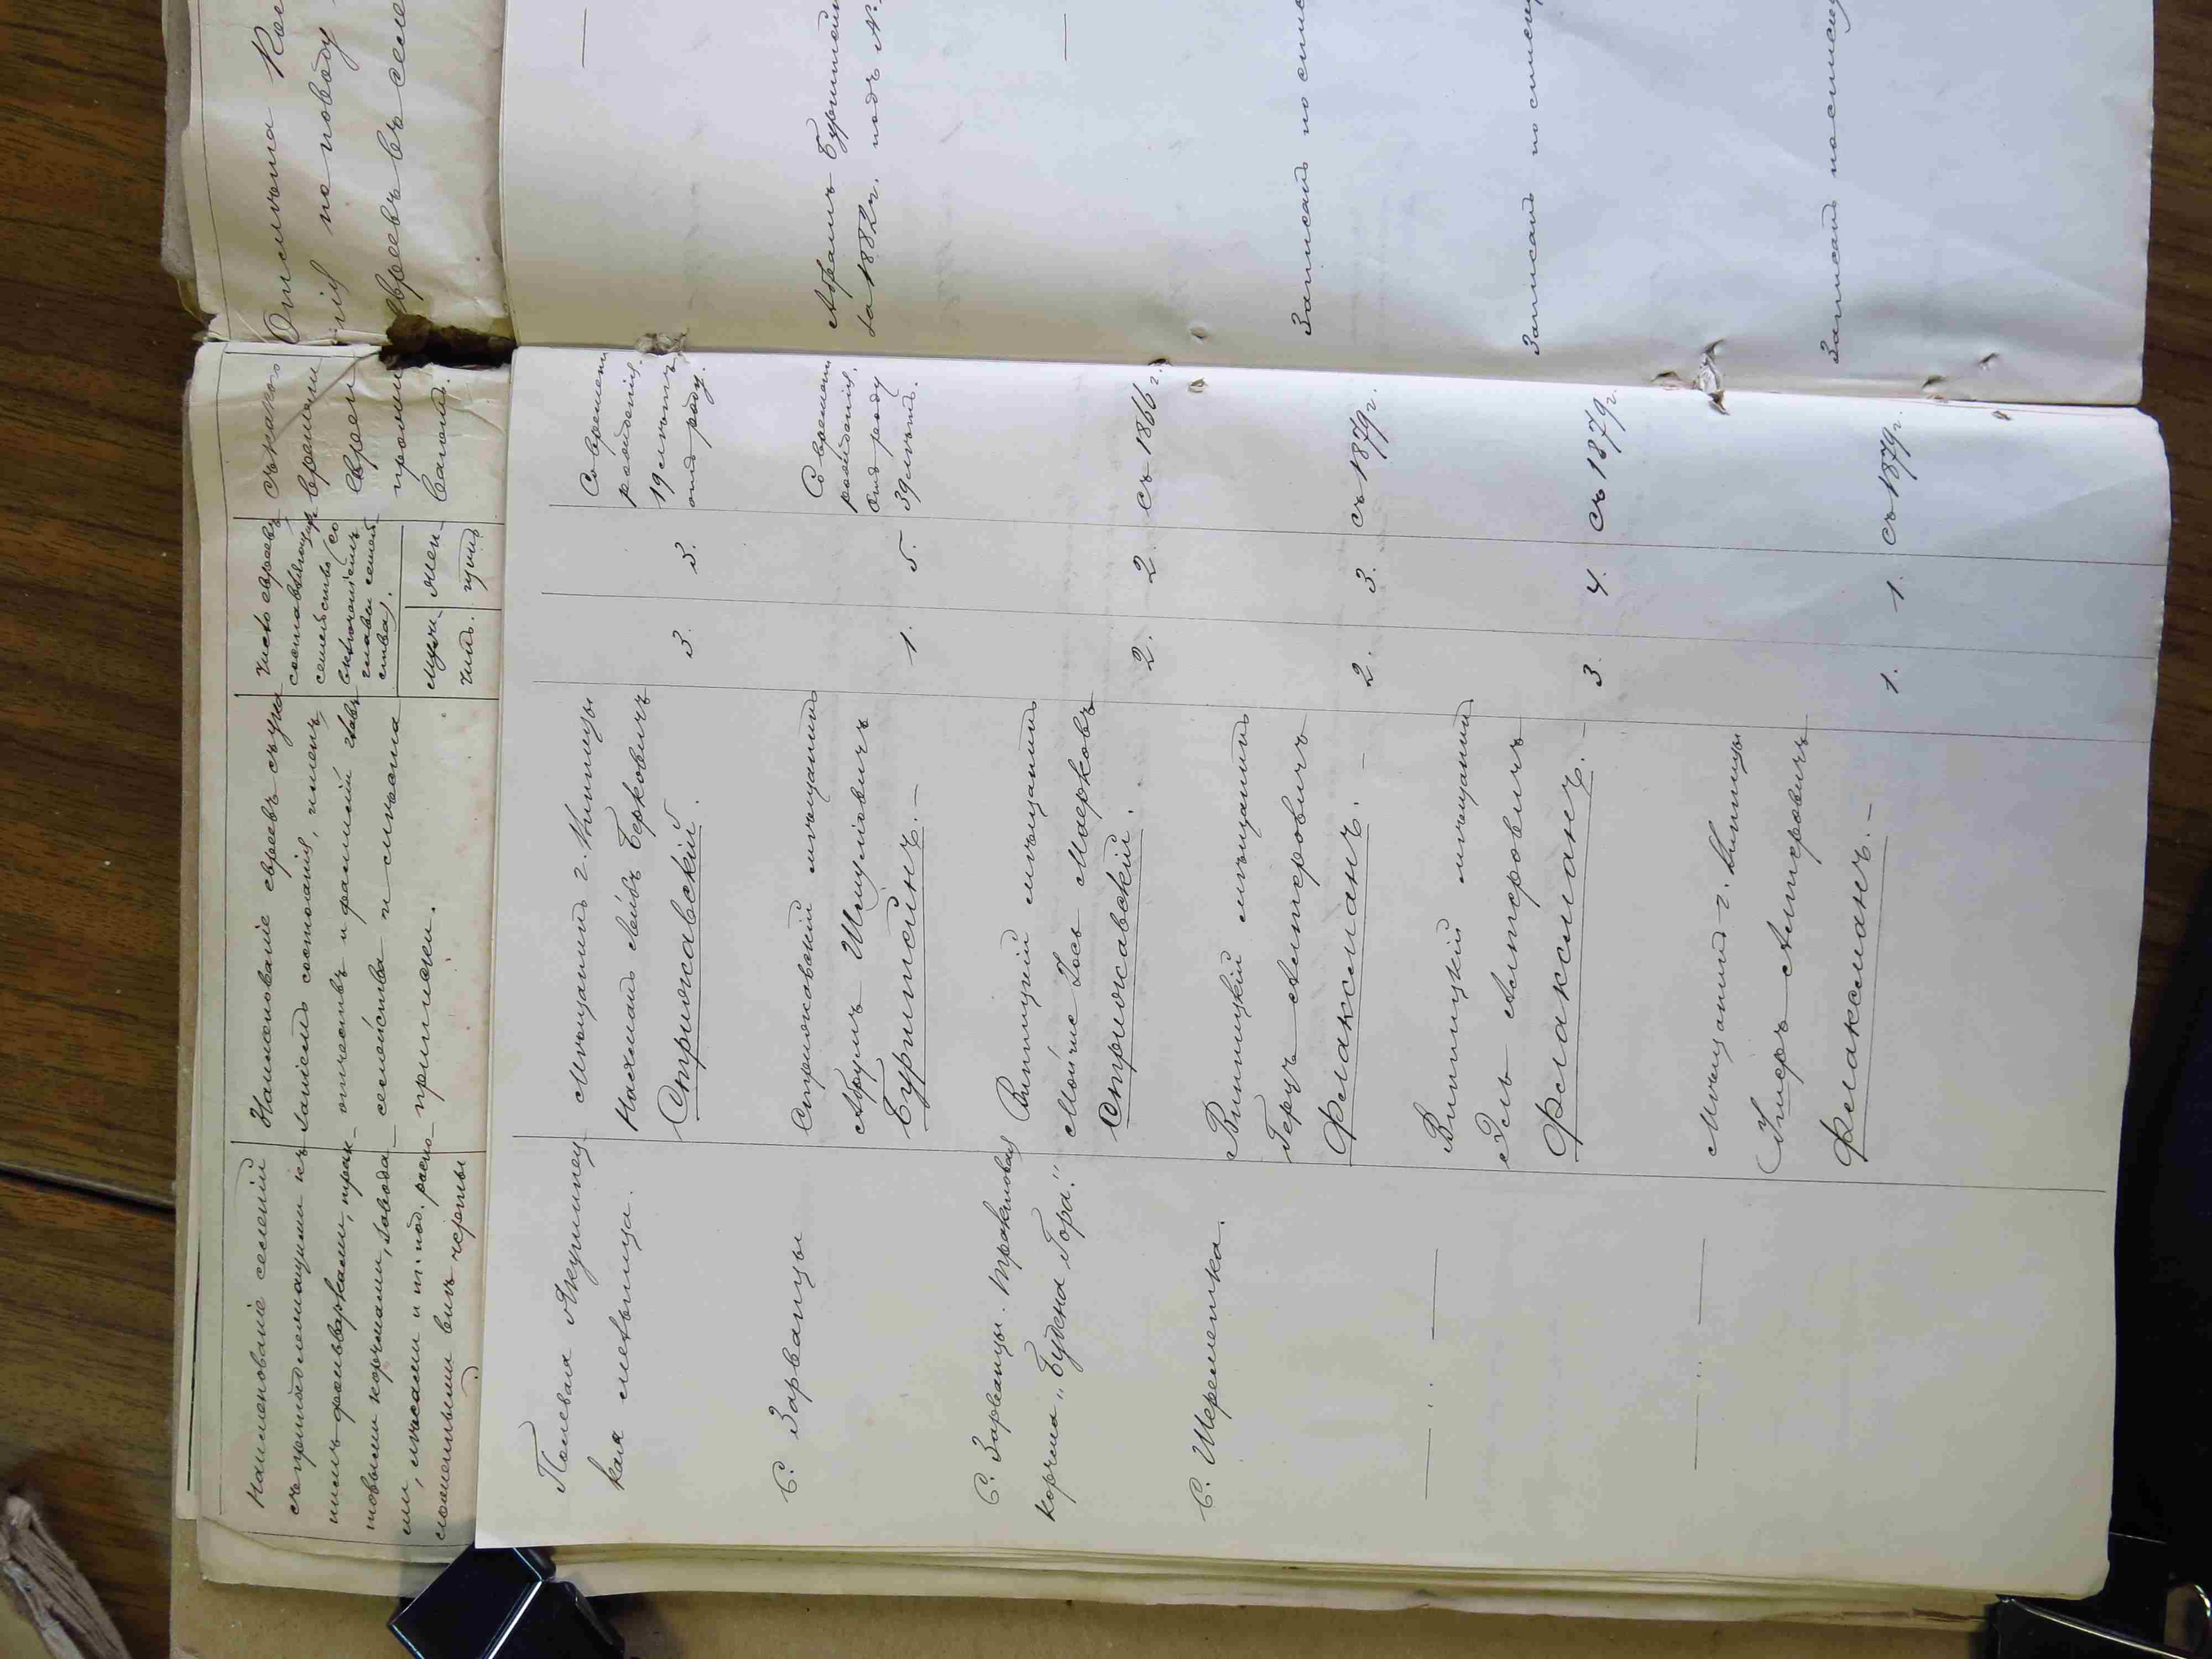 Наименованіе селеній
съ принадлежащими къ
нимъ фольварками, трак-
товыми корчмами, завода-
ми, лѣсами и т. под. распо-
ложенными внѣ черты
Наименованіе евреевъ съ ука-
заніемъ состоянія, именъ,
отчествъ и фамилій главъ
семейства и мѣста
приписки.
Число евреевъ
составляющихъ
семейство (со
включеніемъ
главы семей-
ства).
мужч.
жен-
щинъ
съ какого
времени
евреи
прожи-
ваютъ.
Отмѣтка
по поводу
евреевъ въ
Полевая Якушинец-
кая мельница.
Мѣщанинъ г. Винницы
Нахманъ Лейбъ Берковичъ
Стрижавскій.
3.
3.
Со времени
рожденія.
19 лѣтъ
отъ роду.
С. Зарванцы
Стрижавскій мѣщанинъ
Абрумъ Шмулевичъ
Бурштейнъ.—
1.
5.
Со времени
рожденія.
отъ роду
39 лѣтъ.
Абрамъ
за 1882 г. подъ №
С. Зарванцы. Трактовая
корчма „Будена Гора."
Винницкій мѣщанинъ
Мойше Іось Маерковъ
Стрижавскій.
2.
2.
съ 1866 г.
С. Шереметка.
Винницкій мѣщанинъ
Герцъ Алтеровичъ
Флаксманъ. —
2.
3.
съ 1879 г.
Записанъ по
— . —
Винницкій мѣщанинъ
Эль Алтеровичъ
Флаксманъ. —
3.
4.
съ 1879 г.
Записанъ по
— . . —
Мѣщанинъ г. Винницы
Алтеровичъ
Флаксманъ. —
1.
1.
съ 1879 г.
Записанъ по